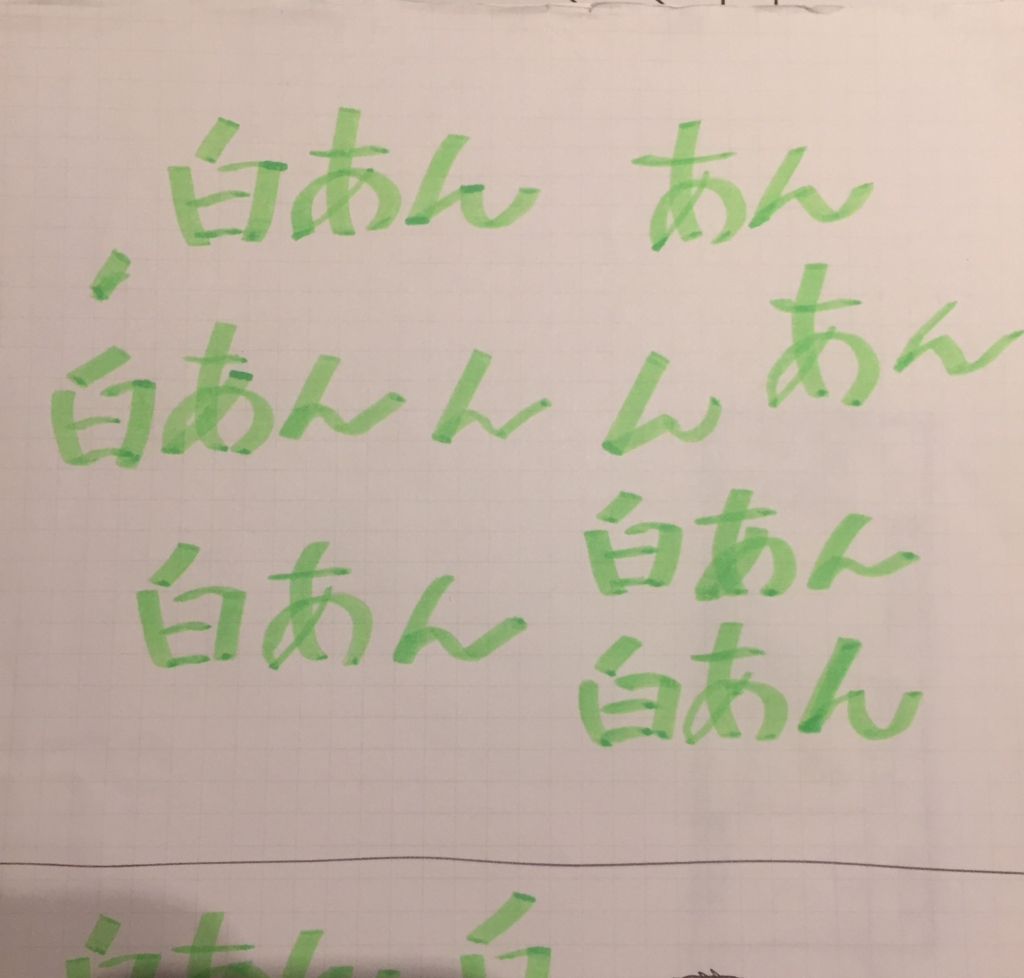 白あん あん
あん
白あん ん ん
白あん
白あん
白あん
白あん 白